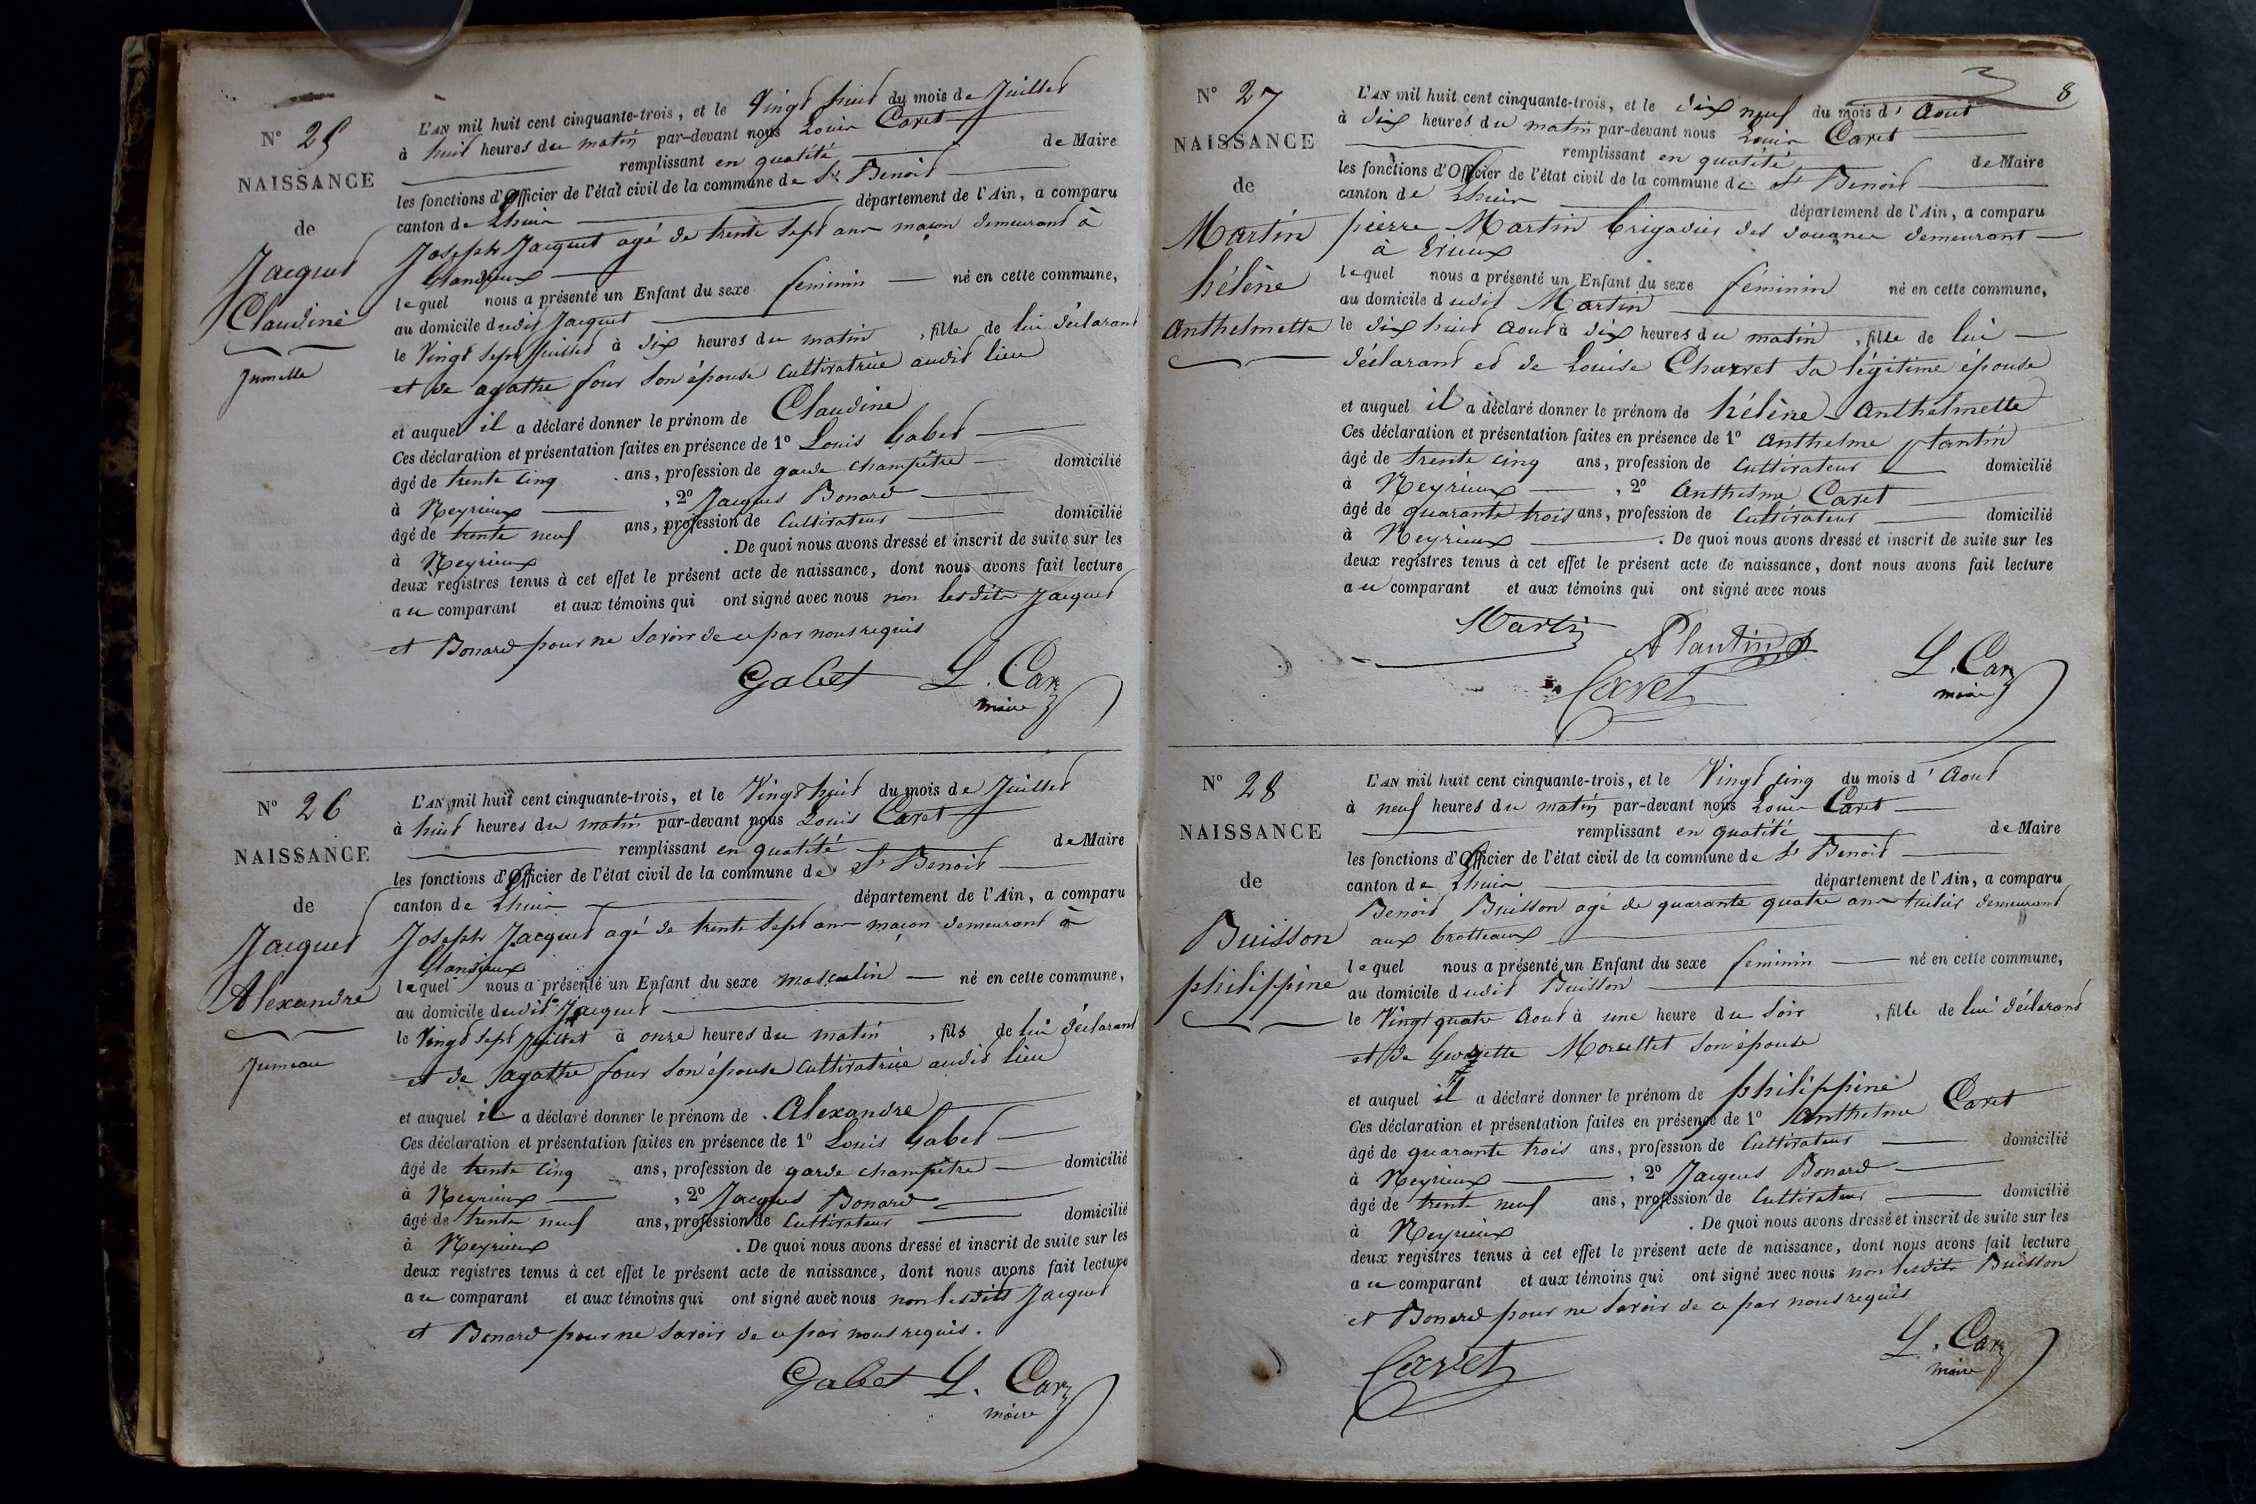 N° 25
NAISSANCE
de
Jacquet
Claudine
Jumelle
L'AN mil huit cent cinquante-trois, et le Vingt huit du mois de Juillet
à huit heures du matin par-devant nous Louis Caret
remplissant en qualité de Maire
les fonctions d'Officier de l'état civil de la commune de St Benoit
canton de Lhuis département de l'Ain, a comparu
Joseph Jacquet agé de trente sept ans maçon demeurant à
Glandieux
lequel nous a présenté un Enfant du sexe féminin né en cette commune,
au domicile dudit Jacquet
le Vingt sept Juillet à dix heures du matin, fille de lui déclarant
et de agathe four son épouse cultivatrice audit lieu
et auquel il a déclaré donner le prénom de Claudine
Ces déclaration et présentation faites en présence de 1° Louis Gabet
âgé de trente cinq ans, profession de garde champêtre domicilié
à Neyrieux, 2° Jacques Bonard
âgé de trente neuf ans, profession de Cultivateur domicilié
à Neyrieux. De quoi nous avons dressé et inscrit de suite sur les
deux registres tenus à cet effet le présent acte de naissance, dont nous avons fait lecture
au comparant et aux témoins qui ont signé avec nous non lesdits Jacquet
et Bonard pour ne savoir de ce par nous requis
Gabet L. Car
maire
N° 26
NAISSANCE
de
Jacquet
Alexandre
Jumeau
L'AN mil huit cent cinquante-trois, et le Vingt huit du mois de Juillet
à huit heures du matin par-devant nous Louis Caret
remplissant en qualité de Maire
les fonctions d'Officier de l'état civil de la commune de St Benoit
canton de Lhuis département de l'Ain, a comparu
Joseph Jacquet agé de trente sept ans maçon demeurant à
Glandieux
lequel nous a présenté un Enfant du sexe masculin né en cette commune,
au domicile dudit Jacquet
le Vingt sept Juillet à onze heures du matin, fils de lui déclarant
et de agathe four son épouse cultivatrice audit lieu
et auquel il a déclaré donner le prénom de Alexandre
Ces déclaration et présentation faites en présence de 1° Louis Gabet
âgé de trente cinq ans, profession de garde champêtre domicilié
à Neyrieux, 2° Jacques Bonard
âgé de trente neuf ans, profession de Cultivateur domicilié
à Neyrieux. De quoi nous avons dressé et inscrit de suite sur les
deux registres tenus à cet effet le présent acte de naissance, dont nous avons fait lecture
au comparant et aux témoins qui ont signé avec nous non lesdits Jacquet
et Bonard pour ne savoir de ce par nous requis.
Gabet L. Car
maire
8
N° 27
NAISSANCE
de
Martin
hélène
Anthelmette
L'AN mil huit cent cinquante-trois, et le dix neuf du mois d'Aout
à dix heures du matin par-devant nous Louis Caret
remplissant en qualité de Maire
les fonctions d'Officier de l'état civil de la commune de St Benoit
canton de Lhuis département de l'Ain, a comparu
pierre Martin brigadier des douanes demeurant
à Evieux
lequel nous a présenté un Enfant du sexe féminin né en cette commune,
au domicile dudit Martin
le dix huit Aout à dix heures du matin, fille de lui
déclarant et de Louise Charvet sa légitime épouse
et auquel il a déclaré donner le prénom de hélène Anthelmette
Ces déclaration et présentation faites en présence de 1° Anthelme plantin
âgé de trente cinq ans, profession de Cultivateur domicilié
à Neyrieux, 2° Anthelme Caret
âgé de quarante trois ans, profession de Cultivateur domicilié
à Neyrieux. De quoi nous avons dressé et inscrit de suite sur les
deux registres tenus à cet effet le présent acte de naissance, dont nous avons fait lecture
au comparant et aux témoins qui ont signé avec nous
Martin
A Plantin
Caret
L. Car
maire
N° 28
NAISSANCE
de
Buisson
philippine
L'AN mil huit cent cinquante-trois, et le Vingt cinq du mois d'Aout
à neuf heures du matin par-devant nous Louis Caret
remplissant en qualité de Maire
les fonctions d'Officier de l'état civil de la commune de St Benoit
canton de Lhuis département de l'Ain, a comparu
Benoit Buisson agé de quarante quatre ans tuilier demeurant
aux brotteaux
lequel nous a présenté un Enfant du sexe féminin né en cette commune,
au domicile dudit Buisson
le Vingt quatre Aout à une heure du soir, fille de lui déclarant
et de son épouse
et auquel il a déclaré donner le prénom de philippine
Ces déclaration et présentation faites en présence de 1° Anthelme Caret
âgé de quarante trois ans, profession de Cultivateur domicilié
à Neyrieux, 2° Jacques Bonard
âgé de trente neuf ans, profession de Cultivateur domicilié
à Neyrieux. De quoi nous avons dressé et inscrit de suite sur les
deux registres tenus à cet effet le présent acte de naissance, dont nous avons fait lecture
au comparant et aux témoins qui ont signé avec nous non lesdits Buisson
et Bonard pour ne savoir de ce par nous requis
Caret
L. Car
maire